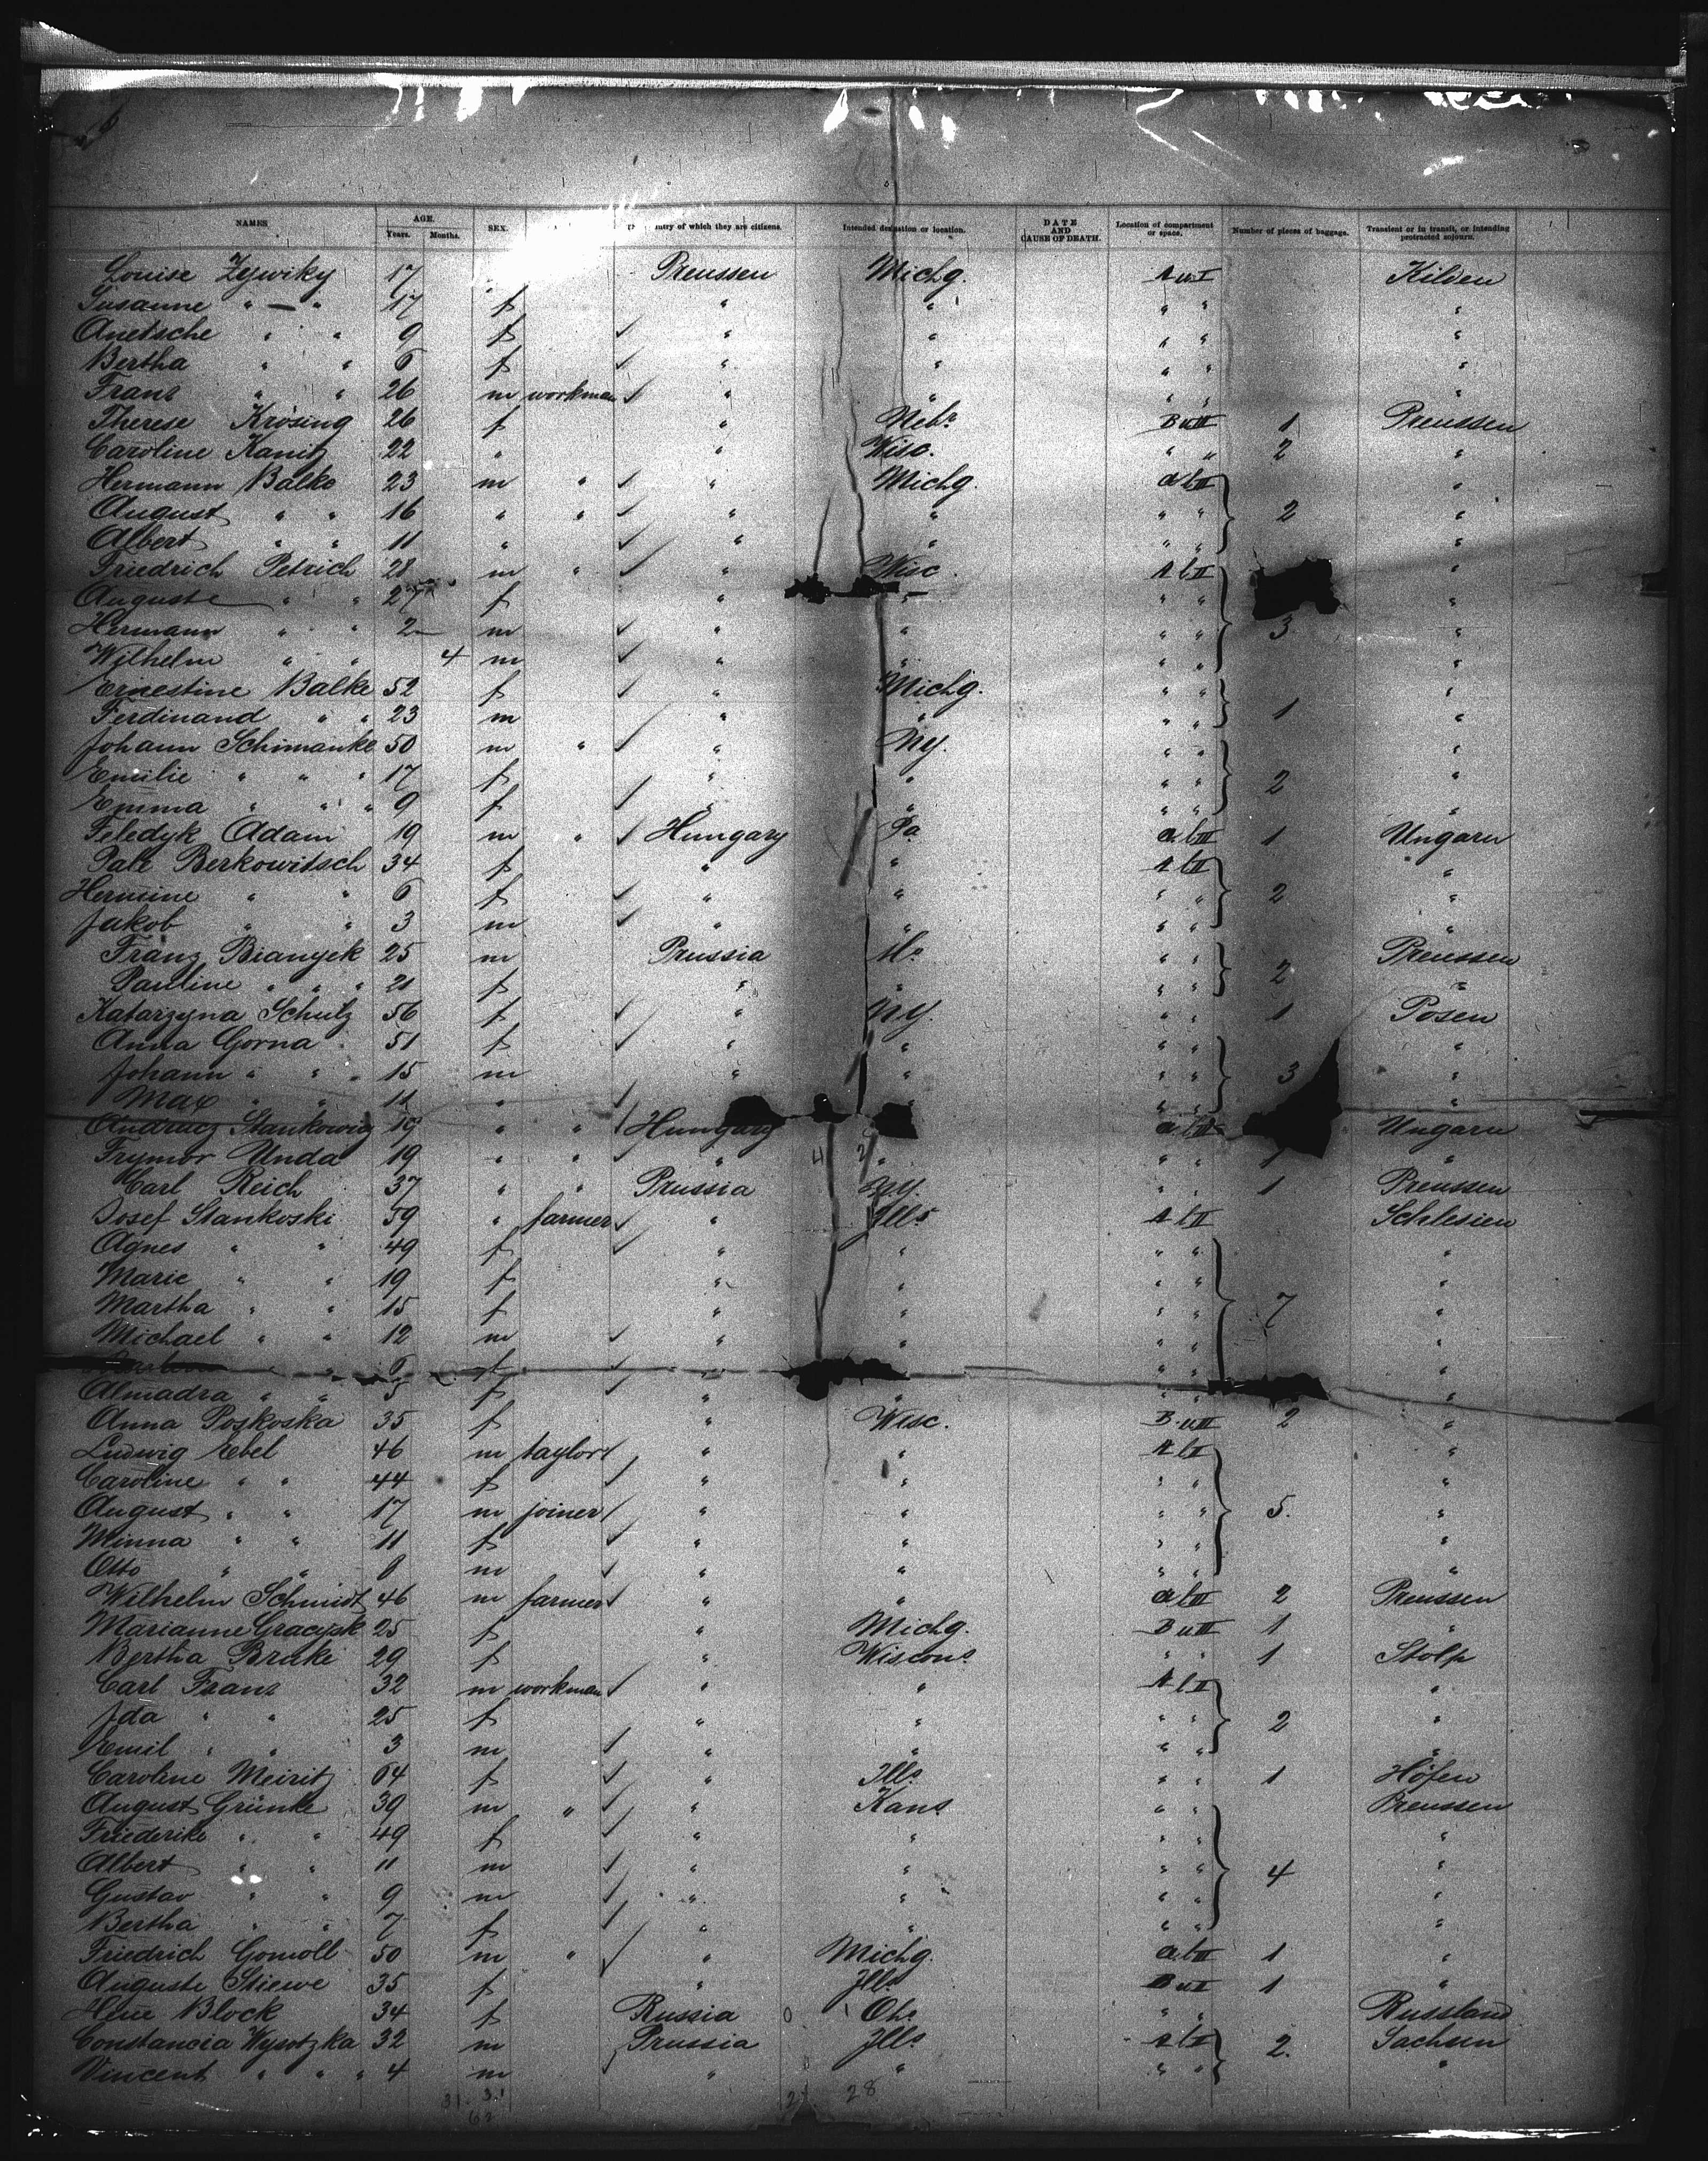 NAMES AGE. Years. Months. SEX. country of which they are citizens. Intended destination or location. DATE AND CAUSE OF DEATH. Location of compartment or space. Number of pieces of baggage. Transient or in transit, or intending protracted sojourn.
Louise Zywiky 17 Preussen Michg. A u I Kilden
Susanne " — " 17 f " " " " "
Anetsche " " 9 f " " " " "
Bertha " " 6 f " " " " "
Franz " " 26 m workman " " " " "
Therese Krösing 26 f " Neb. B u II 1 Preussen
Caroline Kanitz 22 " " Wisc. " " 2 "
Hermann Balke 23 m " " Michg. a l II "
August " " 16 " " " " " " 2 "
Albert " " 11 " " " " " "
Friedrich Petrich 28 m " " Wisc. A l II "
Auguste " " 27 f " " " " "
Hermann " " 2 m " " " " 3 "
Wilhelm " " 4 m " " " " "
Ernestine Balke 52 f " Michg. " " "
Ferdinand " " 23 m " " " " 1 "
Johann Schimanke 50 m " " NY. " " "
Emilie " " " 17 f " " " " 2 "
Emma " " " 9 f " " " " "
Feledyk Adam 19 m " Hungary Pa a l II 1 Ungarn
Pali Berkowitsch 34 f " " A l II "
Hermine " " 6 f " " " " 2 "
Jakob " " 3 m " " " " "
Franz Bianyek 25 m Prussia " " Preussen
Pauline " " " 21 f " " " " 2 "
Katarzyna Schulz 56 f " NY. " " 1 Posen
Anna Gorna 51 f " " " " "
Johann " " " 15 m " " " " 3 "
Max " " 11 " " " " "
Andracz Stankowicz 19 " " Hungary " a l II Ungarn
Frymor Unda 19 " " " " " " 1 "
Carl Reich 37 " " Prussia NY. " " 1 Preussen
Josef Stankoski 59 " farmer " Ills A l II Schlesien
Agnes " " 49 f " " " " "
Marie " " 19 f " " " " "
Martha " " 15 f " " " " 7 "
Michael " " 12 m " " " " "
6 f " " "
Almadra " " 5 f " " " " "
Anna Poskoska 35 f " Wisc. B u II 2 "
Ludwig Ebel 46 m taylor " " A l II "
Caroline " " 44 f " " " " "
August " " 17 m joiner " " " " 5. "
Minna " " 11 f " " " " "
Otto " " 8 m " " " " "
Wilhelm Schmidt 46 m farmer " " a l II 2 Preussen
Marianne Gracyk 25 f " Michg. B u II 1 "
Bertha Brake 29 f " Wiscons. " " 1 Stolp
Carl Franz 32 m workman " " A l II "
Ida " " 25 f " " " " 2 "
Emil " " 3 m " " " " "
Caroline Meiritz 64 f " Ills. " " 1 Höfen
August Grünke 39 m " " Kans " " Preussen
Friederike " " 49 f " " " " "
Albert " " 11 m " " " " 4 "
Gustav " " 9 m " " " " "
Bertha " " 7 f " " " " "
Friedrich Gomoll 50 m " " Michg. a l II 1 "
Auguste Stiewe 35 f " Ills B u II 1 "
Block 34 f Russia 0 Oh. " " Russland
Constancia Wysotzka 32 m Prussia Ills A l II 2. Sachsen
Vincent " " " 4 m " " " " "
31. 31 28
62